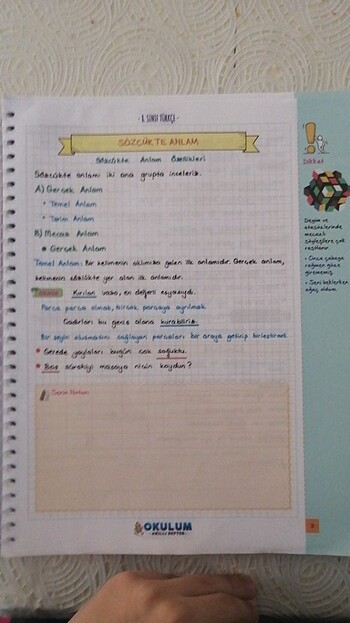 8. SINIF TÜRKÇE
SÖZCÜKTE ANLAM
Sözcükte Anlam Özellikleri
Sözcükte anlamı iki ana grupta inceleriz.
A) Gerçek Anlam
• Temel Anlam
• Terim Anlam
B) Mecaz Anlam
• Gerçek Anlam
Temel Anlam: Bir kelimenin aklımıza gelen ilk anlamıdır. Gerçek anlam,
kelimenin sözlükte yer alan ilk anlamıdır.
Kırılan vazo, en değerli eşyasıydı.
Parça parça olmak, birçok parçaya ayrılmak
Çadırları bu geniş alana kurabiliriz.
Bir şeyin oluşmasını sağlayan parçaları bir araya getirip birleştirmek
• Gerede yaylaları bugün çok soğuktu.
• Boş sürahiyi masaya niçin koydun?
Senin Notun:
OKULUM
- AKILLI DEFTER -
Dikkat
Deyim ve
atasözlerinde
mecazlı
söyleyişlere çok
rastlanır.
• Onca çabaya
rağmen göze
girememiş.
• Seni beklerken
ağaç oldum.
3